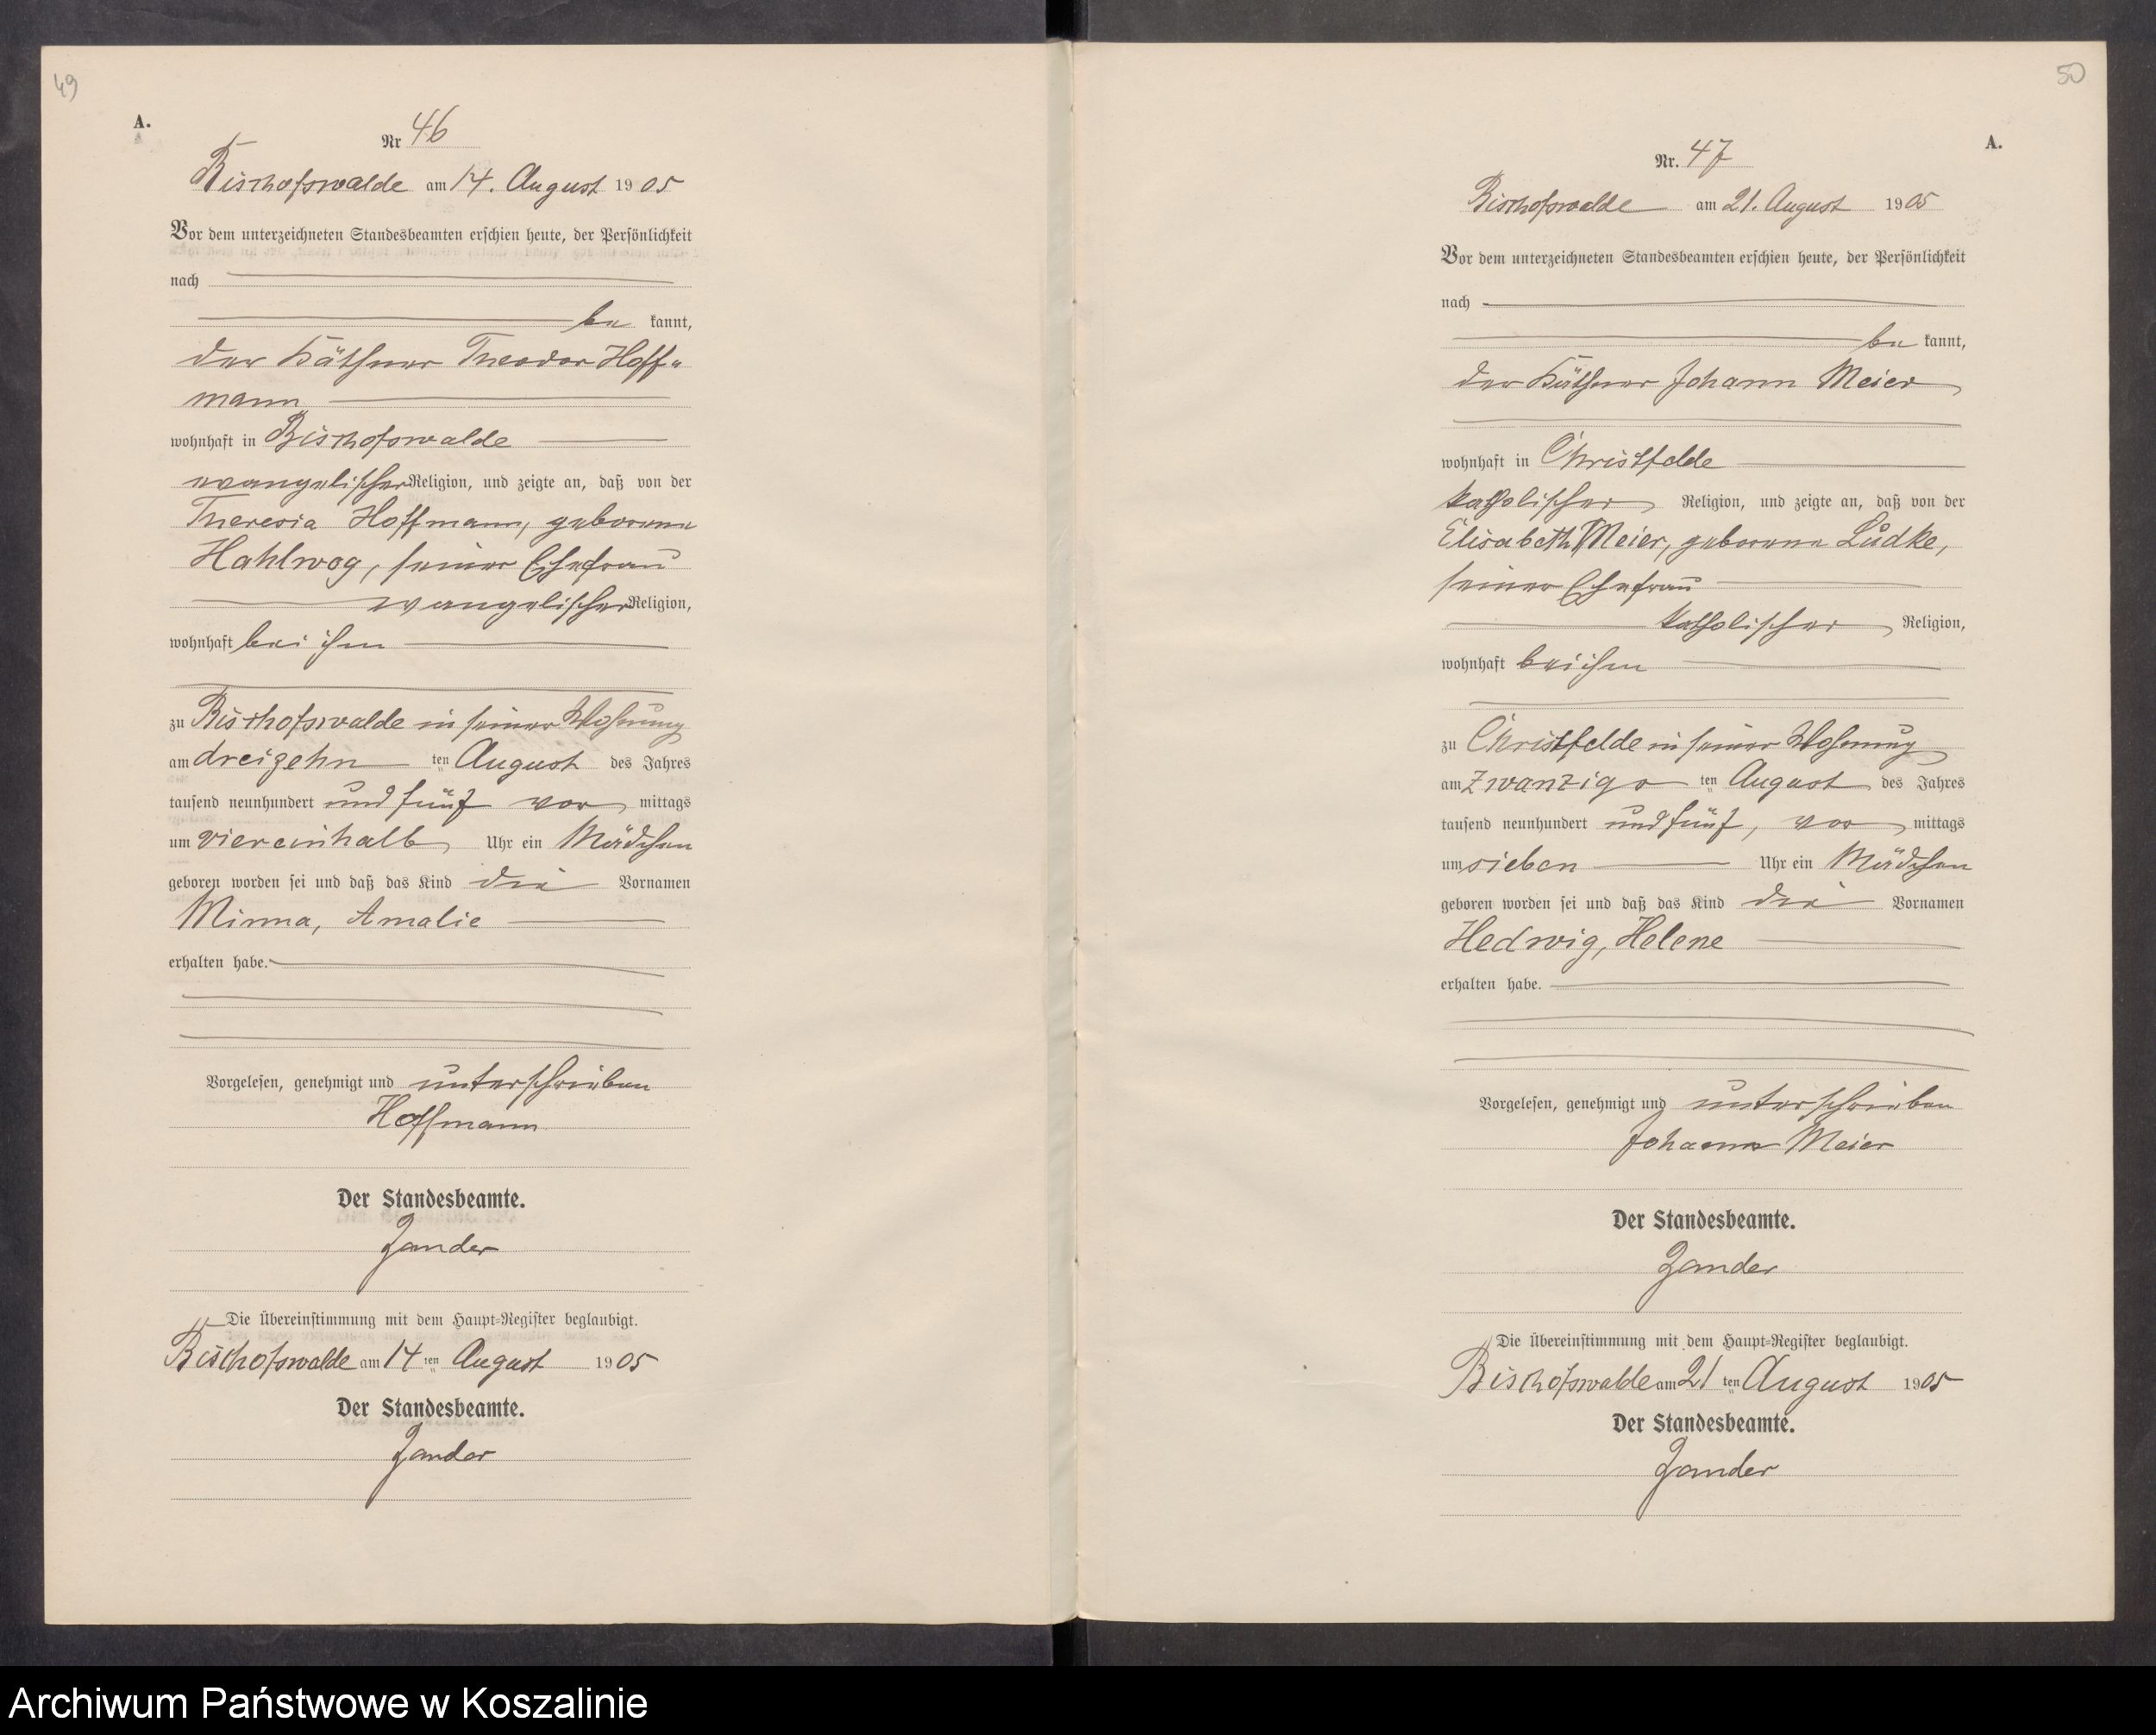 49
A.
Nr 46
Bischofswalde am 14. August 1905
Vor dem unterzeichneten Standesbeamten erschien heute, der Persönlichkeit
nach
be kannt,
der Käthner Theodor Hoff-
mann
wohnhaft in Bischofswalde
evangelischer Religion, und zeigte an, daß von der
Theresia Hoffmann, geborene
Hahlweg, seiner Ehefrau
evangelischer Religion,
wohnhaft bei ihm
zu Bischofswalde in seiner Wohnung
am dreizehn ten August des Jahres
tausend neunhundert und fünf vor mittags
um viereinhalb Uhr ein Mädchen
geboren worden sei und daß das Kind die Vornamen
Minna, Amalie
erhalten habe.
Vorgelesen, genehmigt und unterschrieben
Hoffmann
Der Standesbeamte.
Zander
Die Übereinstimmung mit dem Haupt-Register beglaubigt.
Bischofswalde am 14 ten August 1905
Der Standesbeamte.
Zander
50
A.
Nr. 47
Bischofswalde am 21. August 1905
Vor dem unterzeichneten Standesbeamten erschien heute, der Persönlichkeit
nach
be kannt,
der Käthner Johann Meier
wohnhaft in Christfelde
katholischer Religion, und zeigte an, daß von der
Elisabeth Meier, geborene Lüdke,
seiner Ehefrau
katholischer Religion,
wohnhaft bei ihm
zu Christfelde in seiner Wohnung
am zwanzigs ten August des Jahres
tausend neunhundert und fünf, vor mittags
um sieben Uhr ein Mädchen
geboren worden sei und daß das Kind die Vornamen
Hedwig, Helene
erhalten habe.
Vorgelesen, genehmigt und unterschrieben
Johann Meier
Der Standesbeamte.
Zander
Die Übereinstimmung mit dem Haupt-Register beglaubigt.
Bischofswalde am 21 ten August 1905
Der Standesbeamte.
Zander
Archiwum Państwowe w Koszalinie